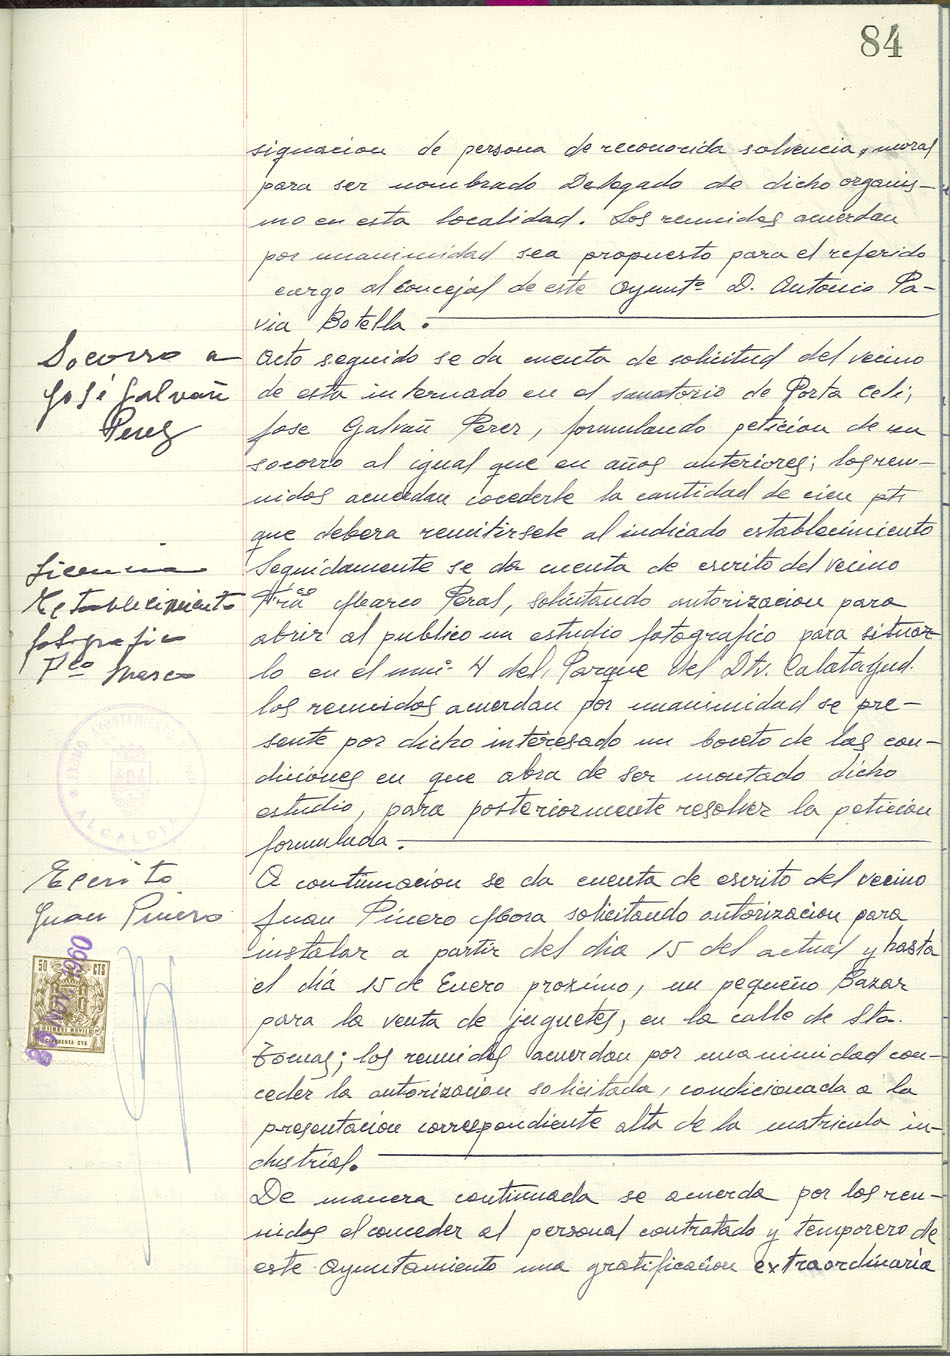 84
signacion de persona de reconocida solvencia, moral
para ser nombrado Delegado de dicho organis-
mo en esta localidad. Los reunidos acuerdan
por unanimidad sea propuesto para el referido
cargo al concejal de este Ayuntº D. Antonio Pa-
via Botella.
Socorro a
José Galvañ
Perez
Acto seguido se da cuenta de solicitud del vecino
de esta internado en el sanatorio de Porta Celi,
Jose Galvañ Perez, formulando peticion de un
socorro al igual que en años anteriores; los reu-
nidos acuerdan cocederle la cantidad de cien pts
que debera remitirsele al indicado establecimiento
Licencia
Establecimiento
fotografico
Fco Marco
Seguidamente se da cuenta de escrito del vecino
Frco Marco Peral, solicitando autorizacion para
abrir al publico un estudio fotografico para situar-
lo en el num. 4 del Parque del Dtr. Calatayud.
los reunidos acuerdan por unanimidad se pre-
sente por dicho interesado un boceto de las con-
diciones en que abra de ser montado dicho
estudio, para posteriormente resolver la peticion
formulada.
EXCMO. AYUNTAMIENTO
ALCALDIA
Escrito
Juan Piñero
50 CTS
25 NOV. 1960
TIMBRE MOVIL
CINCUENTA CTS
A continuacion se da cuenta de escrito del vecino
Juan Piñero Mora solicitando autorizacion para
instalar a partir del dia 15 del actual y hasta
el dia 15 de Enero proximo, un pequeño Bazar
para la venta de juguetes, en la calle de Sto.
Tomas; los reunidos acuerdan por unanimidad con-
ceder la autorizacion solicitada, condicionada a la
presentacion correspondiente alta de la matricula in-
dustrial.
De manera continuada se acuerda por los reu-
nidos el conceder al personal contratado y temporero de
este Ayuntamiento una gratificacion extraordinaria